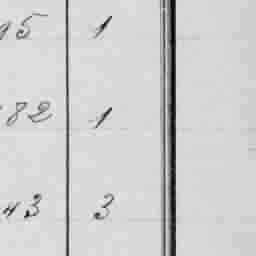 95 1
82 1
43 3